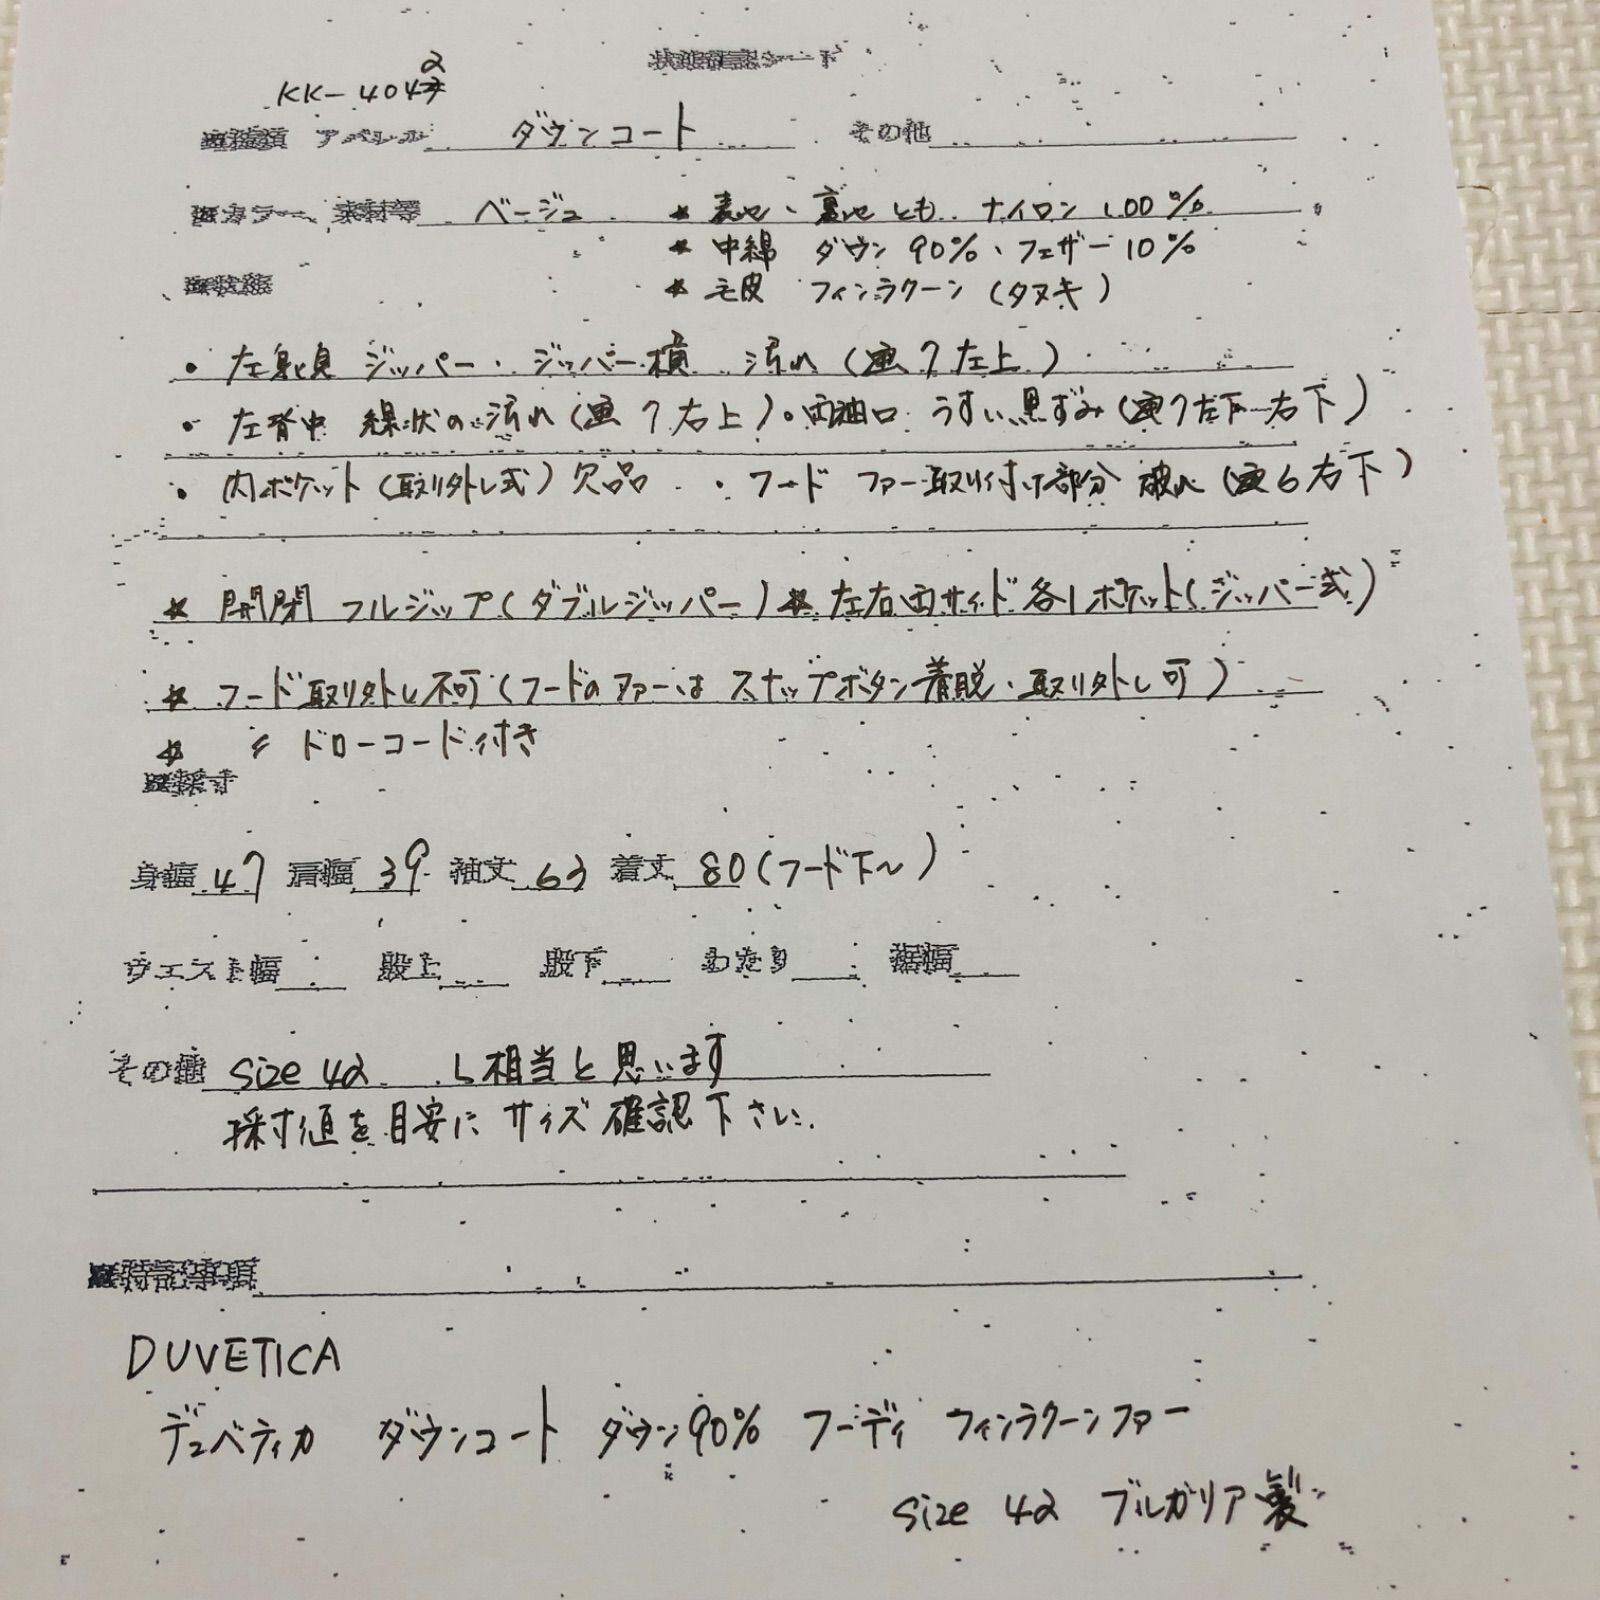 状態確認シート
KK-4042
※種類 アパレル ダウンコート その他
※カラー、素材等 ベージュ * 表地、裏地とも ナイロン 100%
* 中綿 ダウン 90%、フェザー 10%
※状態
* 毛皮 フィンラクーン (タヌキ)
・左身頃 ジッパー・ジッパー横 汚れ (画7左上)
・左背中 線状の汚れ (画7右上)・両袖口 うすい黒ずみ (画7左下-右下)
・内ポケット (取り外し式) 欠品 ・フード ファー取り付け部分 破れ (画6右下)
* 開閉 フルジップ (ダブルジッパー) * 左右両サイド各1ポケット (ジッパー式)
* フード取り外し不可 (フードのファーは スナップボタン着脱・取り外し可)
* 〃 ドローコード付き
※採寸
身幅 47 肩幅 39 袖丈 63 着丈 80 (フード下~)
ウエスト幅 股上 股下 わたり 裾幅
その他 size 42 L相当と思います
採寸値を目安に サイズ確認下さい。
※特記事項
DUVETICA
デュベティカ ダウンコート ダウン90% フーディ フィンラクーンファー
size 42 ブルガリア製